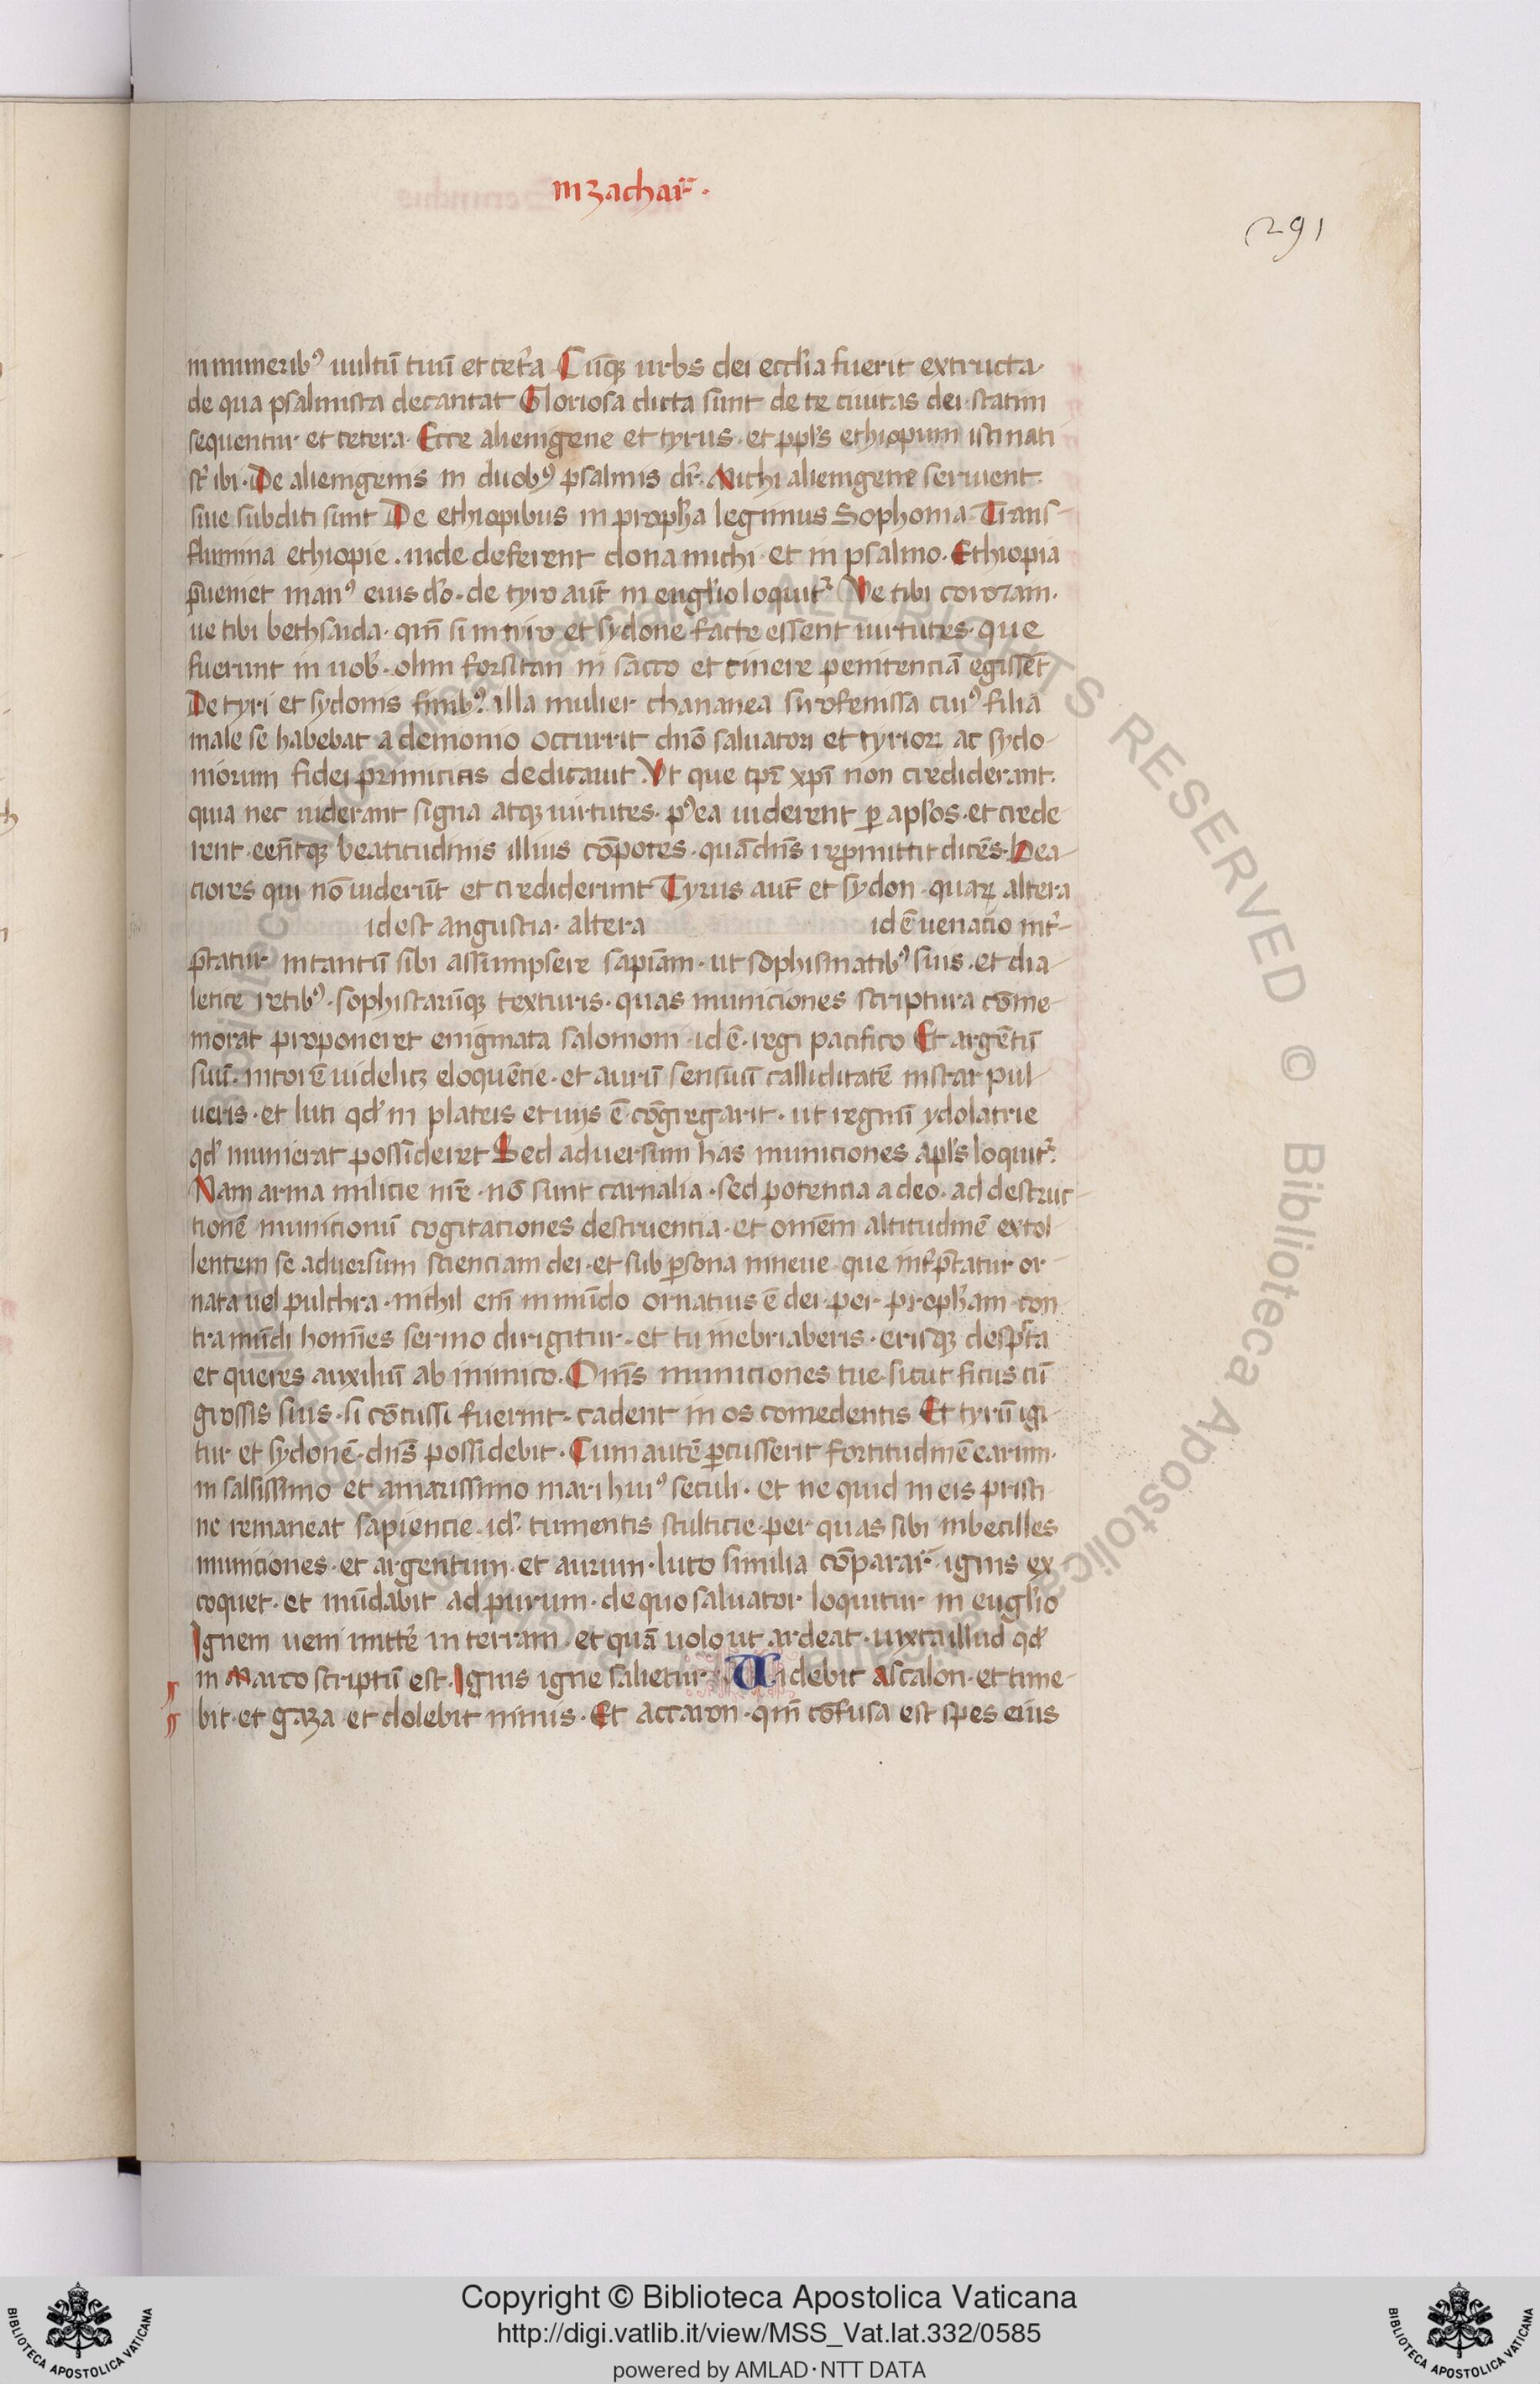 in zachar̄ .
291
in muneribꝰ uultū tuū et cet̉a Cūqꝫ urbs dei eccl̉ia fuerit extructa·
de qua psalmista decantat Gloriosa dicta sunt de te ciuitas dei· statim
sequentur et cetera· Ecce alienigene et tyrus· et ppl̉s ethiopum isti nati
st̉ ibi· De alienigenis in duobꝰ psalmis dr̄· Michi alienigene seruient·
siue subditi sunt De ethiopibus in proph̉a legimus Sophonia· Trans-
flumina ethiopie· inde deferent dona michi· et in psalmo· Ethiopia
p̄ueniet manꝰ eius do̅· de tyro aut̄ in eugl̉io loquit̉ Ve tibi corozam·
ue tibi bethsaida· qm̄ si in tyro et sydone facte essent uirtutes· que
fuerunt in uob̉· olim forsitan in sacco et cinere penitenciā egissēt
De tyri et sydonis finibꝰ· illa mulier chananea sirofenissa cuiꝰ filia
male se habebat a demonio occurrit dn̄o saluatori et tyrioꝝ ac sydo-
niorum fidei primicias dedicauit· Vt que tp̄r xp̄i non crediderant·
quia nec uiderant signa atqꝫ uirtutes· pꝰea uiderent ꝑ apl̉os· et crede
rent· eēntqꝫ beatitudinis illius cōpotes· quā dn̄s repromittit dicēs· Bea-
ciores qui nō uiderūt et crediderunt Tyrus aut̄ et sydon· quaꝝ altera
id est angustia· altera id ē uenatio int̉-
p̄tatur in tantū sibi assumpsere sapiām· ut sophismatibꝰ suis· et dia-
letice retibꝰ· sophistarūqꝫ texturis· quas municiones scriptura cōme-
morat proponeret enigmata salomoni· id ē· regi pacifico Et argētū
suū· nitorē uidelicꝫ eloquētie· et aurū sensuū calliditatē instar pul-
ueris· et luti qd̉ in plateis et uijs ē· cōgregarit· ut regnū ydolatrie
qd̉ munierat possideret Sed aduersum has municiones apl̉s loquit̉·
Nam arma milicie nr̄e· nō sunt carnalia· sed potencia a deo· ad destruc-
tionē municionū cogitationes destruentia· et omēm altitudinē extol-
lentem se aduersum scienciam dei· et sub ꝑsona niniue· que int̉p̄tatur or-
nata uel pulchra· nichil eni̅ in mūdo ornatius ē dei· per proph̉am· con
tra mūdi homīes sermo dirigitur· et tu inebriaberis· erisqꝫ desp̄cta
et queres auxiliū ab inimico· Om̄s municiones tue· sicut ficus cū
grossis suis· si cōcussi fuerint· cadent in os comedentis Et tyrū igi-
tur et sydonē· dn̄s possidebit· Cum autē ꝑcusserit fortitudinē earum·
in salsissimo et amarissimo mari huiꝰ seculi· et ne quid in eis pristi-
ne remaneat sapiencie· id̉· tumentis stulticie· per quas sibi inbecilles
municiones· et argentum· et aurum· luto similia cōparar̄· ignis ex-
coquet· et mūdabit ad purum· de quo saluator loquitur in eugl̉io
Ignem ueni mitt̉e in terram· et quā uolo ut ardeat· iuxta illud qd̉
in Marco scriptū est· Ignis igne salietur· Uidebit ascalon· et time-
bit· et gaza· et dolebit nimis· Et accaron· qm̄ cōfusa est spes eius
Copyright © Biblioteca Apostolica Vaticana
http://digi.vatlib.it/view/MSS_Vat.lat.332/0585
powered by AMLAD·NTT DATA